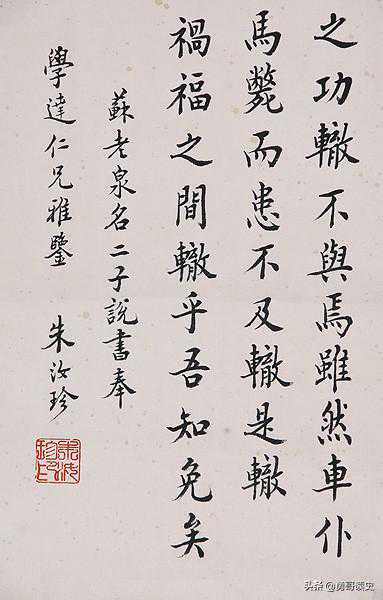 之功轍不與焉雖然車仆
馬斃而患不及轍是轍
禍福之間轍乎吾知免矣
蘇老泉名二子說書奉
學達仁兄雅鑒 朱汝珍
朱汝珍印
头条 @勇哥读史